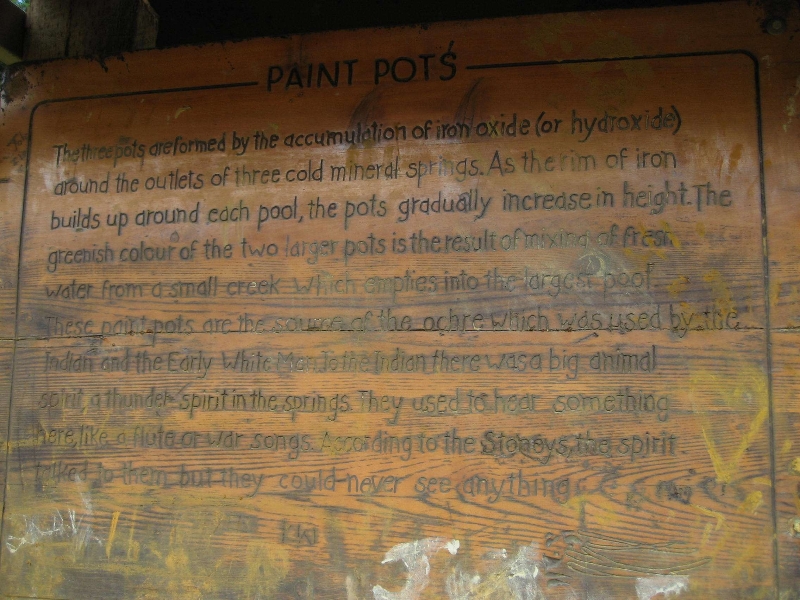 PAINT POTS
The three pots are formed by the accumulation of iron oxide (or hydroxide)
around the outlets of three cold mineral springs. As the rim of iron
builds up around each pool, the pots gradually increase in height. The
greenish colour of the two larger pots is the result of mixing of fresh
water from a small creek which empties into the largest pool.
These paint pots are the source of the ochre which was used by the
Indian and the Early White Man. To the Indian there was a big animal
spirit, a thunder spirit in the springs. They used to hear something
here, like a flute or war songs. According to the Stoneys, the spirit
talked to them but they could never see anything